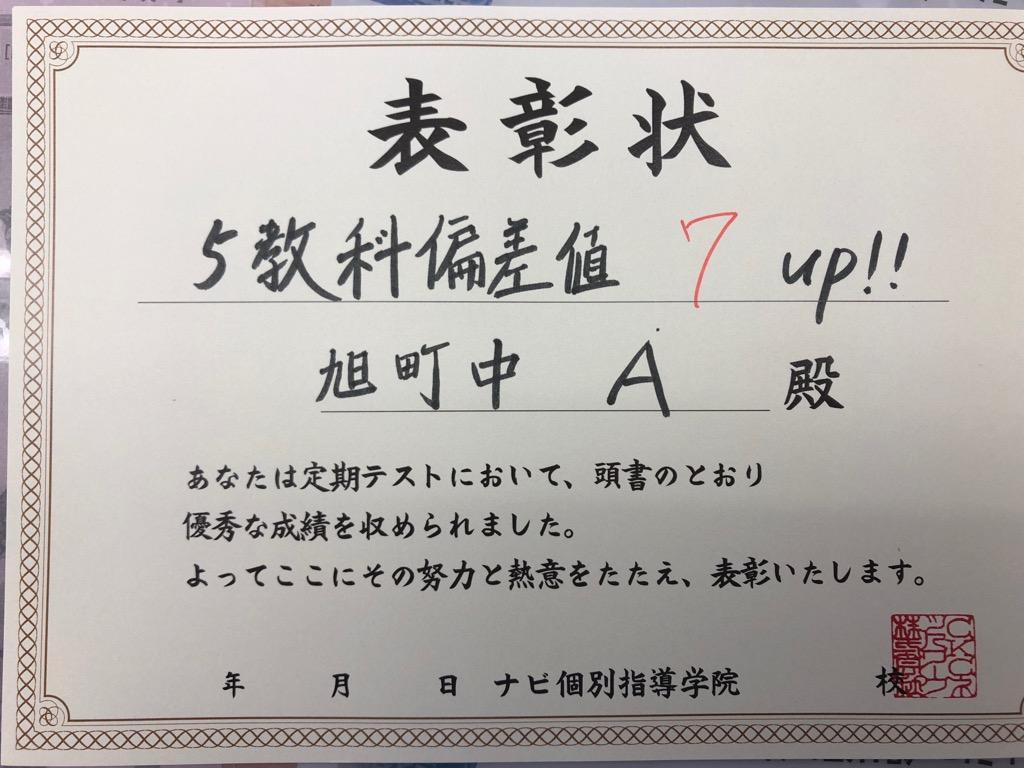 表彰状
5教科偏差値 7 up!!
旭町中 A 殿
あなたは定期テストにおいて、頭書のとおり
優秀な成績を収められました。
よってここにその努力と熱意をたたえ、表彰いたします。
年 月 日 ナビ個別指導学院 校